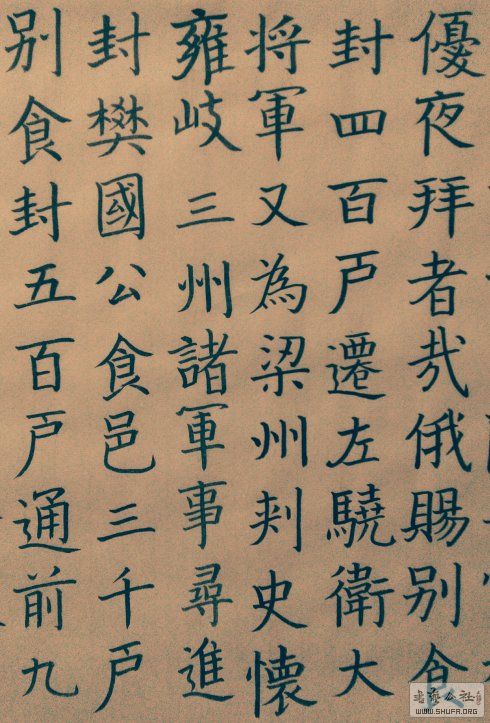 優夜拜者㢤俄賜别食
封四百戸遷左驍衛大
将軍又為梁州刺史懷
雍岐三州諸軍事尋進
封樊國公食邑三千戸
别食封五百戸通前九
WWW.SHUFA.ORG